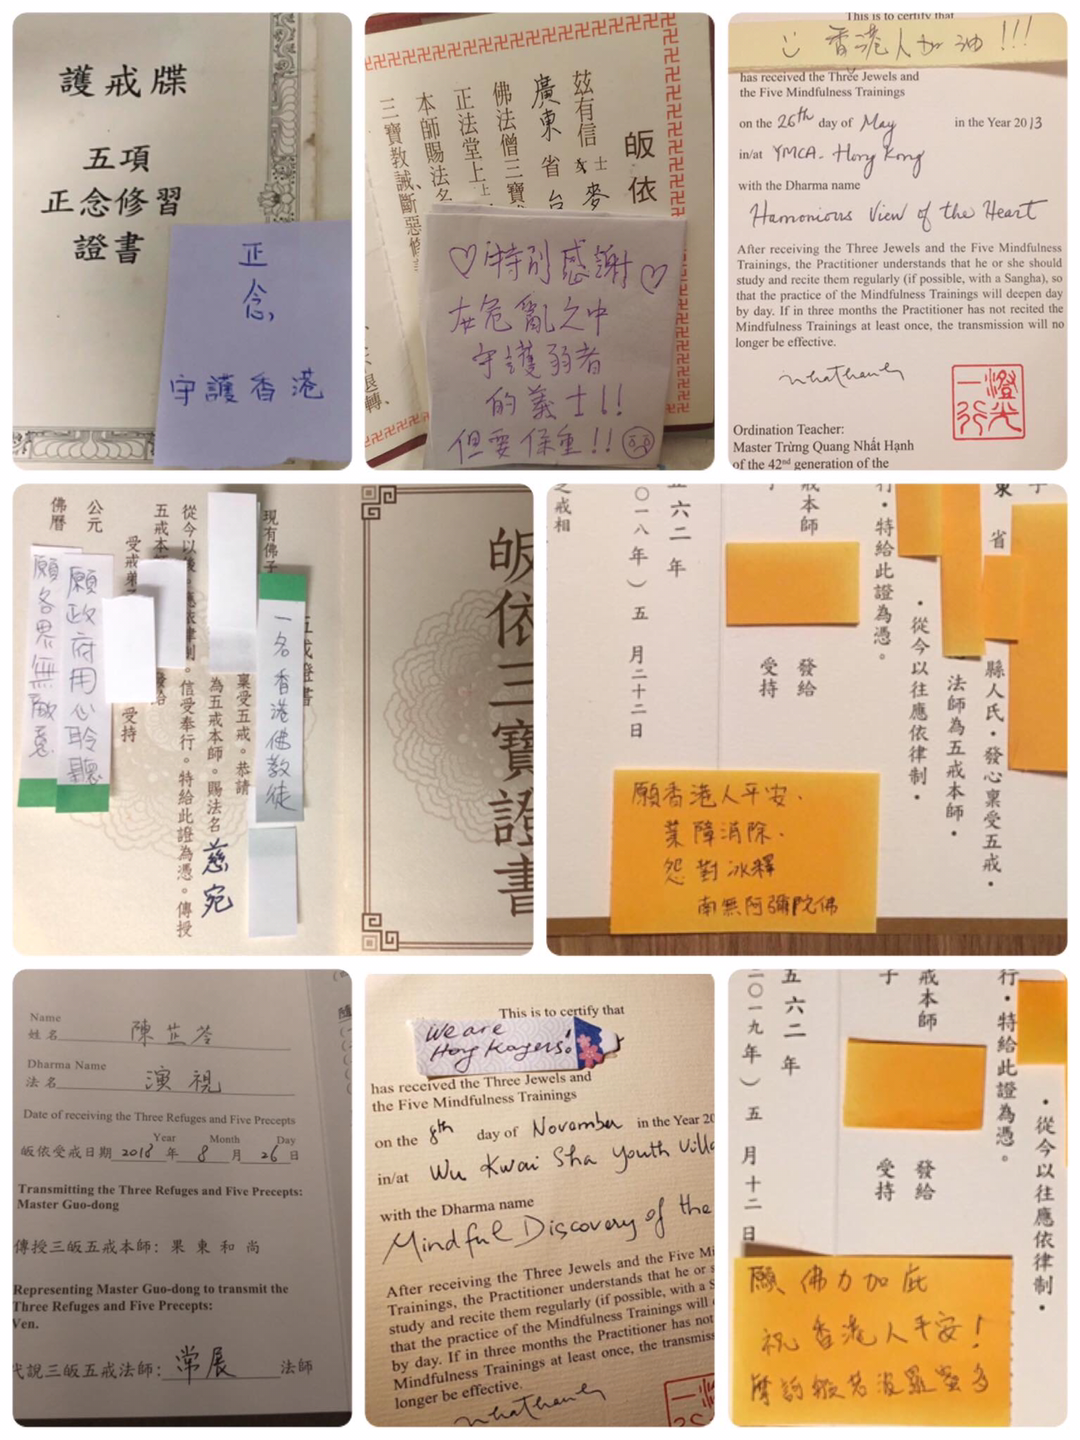 護戒牒
五項
正念修習
證書
正
念
守護香港
皈依
茲有信士
廣東省台
佛法僧三寶
正法堂上
本師賜法名
三寶教誡斷惡修
退轉、
♡特別感謝♡
在危亂之中
守護弱者
的義士!!
但要保重!!
This is to certify that
香港人加油!!!
has received the Three Jewels and
the Five Mindfulness Trainings
on the 26th day of May in the Year 2013
in/at YMCA - Hong Kong
with the Dharma name
Harmonious View of the Heart
After receiving the Three Jewels and the Five Mindfulness
Trainings, the Practitioner understands that he or she should
study and recite them regularly (if possible, with a Sangha), so
that the practice of the Mindfulness Trainings will deepen day
by day. If in three months the Practitioner has not recited the
Mindfulness Trainings at least once, the transmission will no
longer be effective.
nhathanh
一行
Ordination Teacher:
Master Trừng Quang Nhất Hạnh
of the 42nd generation of the
皈依三寶證書
現有佛子
一名香港佛教徒
稟受五戒。恭請
為五戒本師。賜法名慈宛
信受奉行。特給此證為憑。傳授
五戒本
受持
公元
佛曆
願政府用心聆聽
願各界無敵意
東省
縣人氏・發心稟受五戒・
法師為五戒本師・
・從今以往應依律制・
行・特給此證為憑。
戒本師
發給
受持
五六二年
〇一八年）五月二十二日
之戒相
願香港人平安、
業障消除、
怨對冰釋
南無阿彌陀佛
Name
姓名 陳芷苓
Dharma Name
法名 演視
Date of receiving the Three Refuges and Five Precepts
Year Month Day
皈依受戒日期 2018 年 8 月 26 日
Transmitting the Three Refuges and Five Precepts:
Master Guo-dong
傳授三皈五戒本師: 果東和尚
Representing Master Guo-dong to transmit the
Three Refuges and Five Precepts:
Ven.
代說三皈五戒法師: 常展 法師
This is to certify that
We are
Hong Kongers!
has received the Three Jewels and
the Five Mindfulness Trainings
on the 8th day of November in the Year 20
in/at Wu Kwai Sha Youth Villa
with the Dharma name
Mindful Discovery of the
After receiving the Three Jewels and the Five Mi
Trainings, the Practitioner understands that he or s
study and recite them regularly (if possible, with a S
that the practice of the Mindfulness Trainings will
by day. If in three months the Practitioner has not
Mindfulness Trainings at least once, the transmiss
longer be effective.
nhathanh
行・特給此證為憑。
・從今以往應依律制・
戒本師
發給
受持
五六二年
二〇一九年）五月十二日
願佛力加庇
祝香港人平安!
摩訶般若波羅蜜多